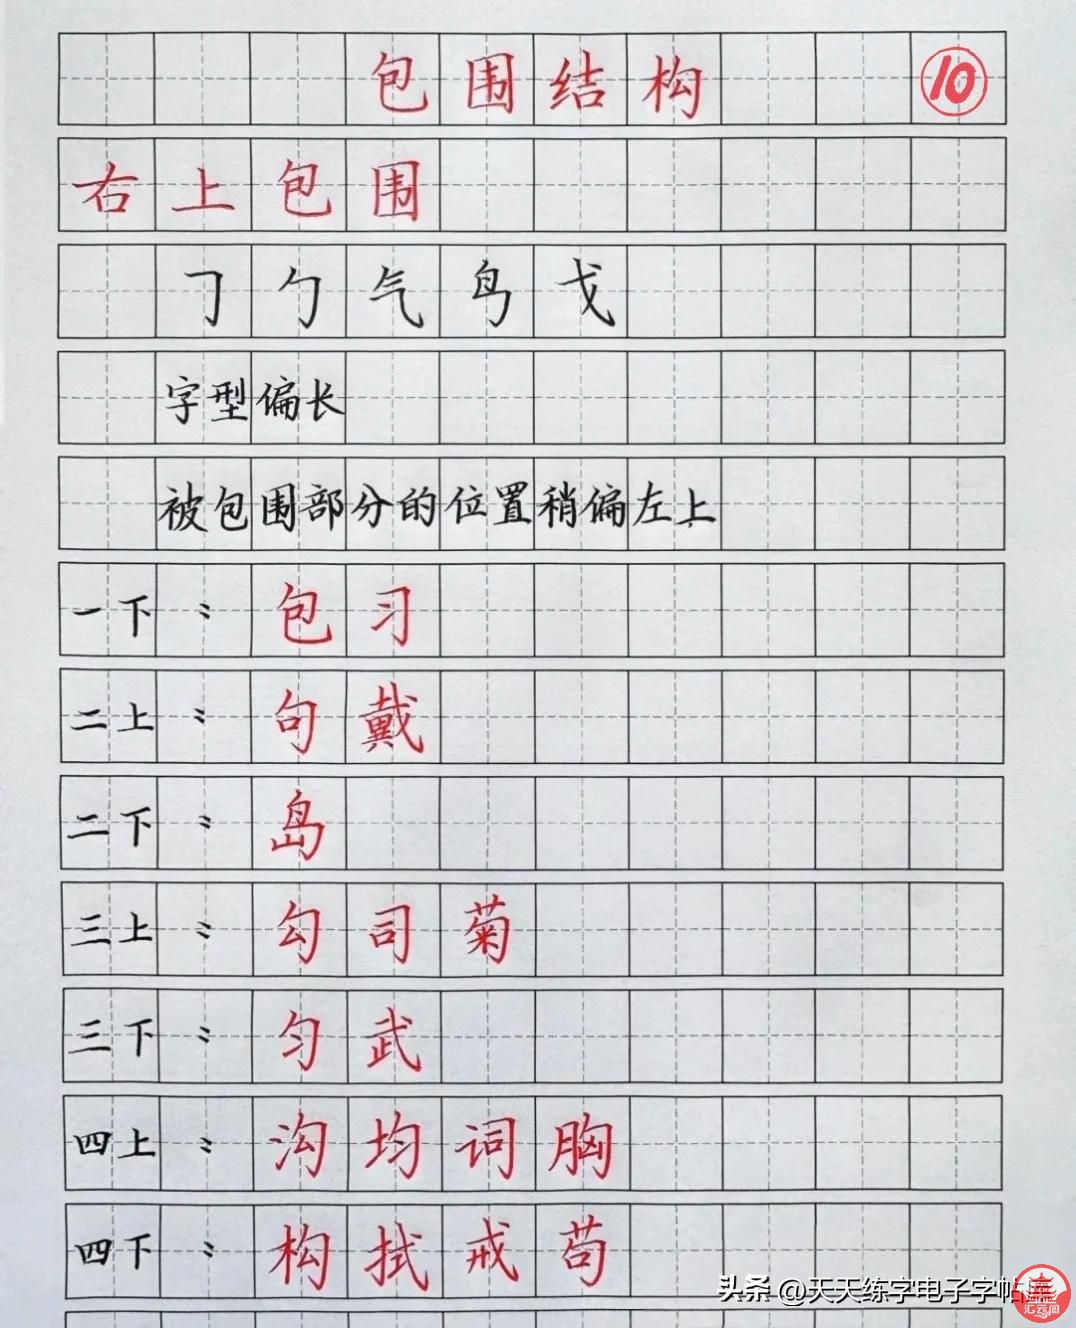 包围结构 ⑩
右上包围
㇆ 勹 气 鸟 戈
字型偏长
被包围部分的位置稍偏左上
一下：包 习
二上：句 戴
二下：岛
三上：勾 司 菊
三下：匀 武
四上：沟 均 词 胸
四下：构 拭 戒 苟
头条 @天天练字电子字帖
汇云阁